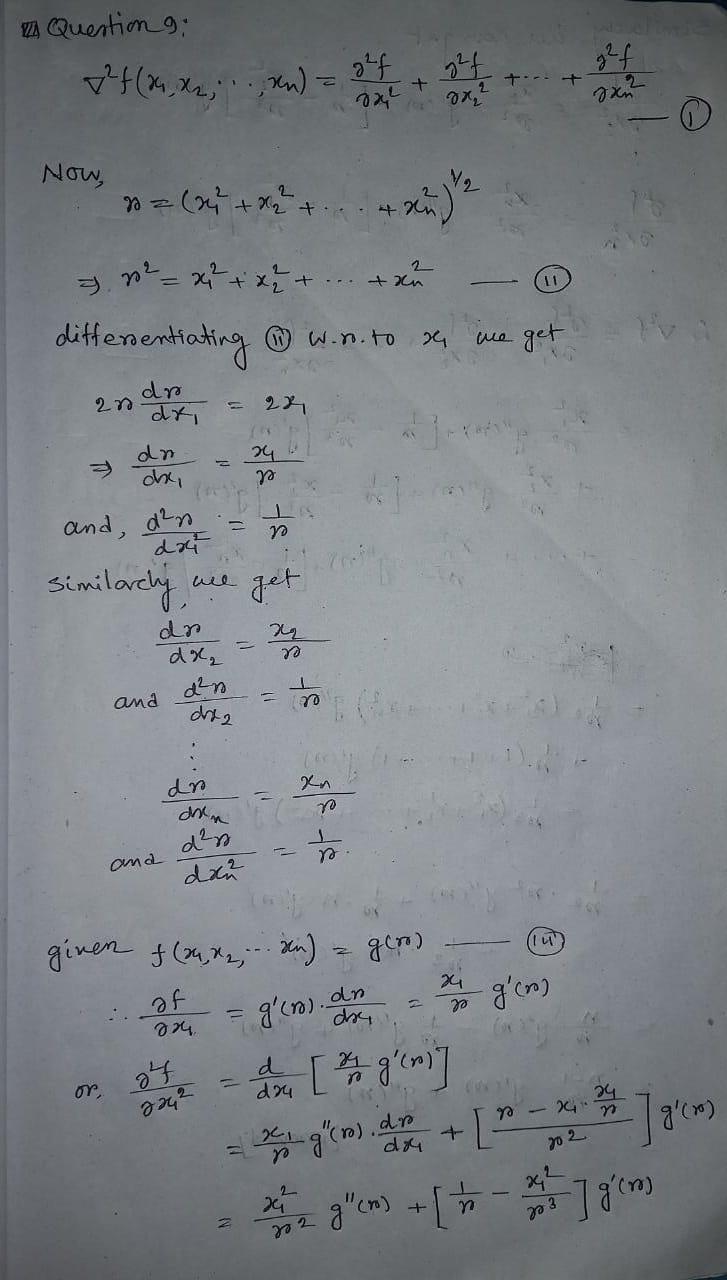 Question 9:
∇²f(x₁, x₂, ..., xn) = ∂²f/∂x₁² + ∂²f/∂x₂² + ... + ∂²f/∂xn² — (i)
Now,
r = (x₁² + x₂² + ... + xn²)^1/2
⇒ r² = x₁² + x₂² + ... + xn² — (ii)
differentiating (ii) w.r.to x₁ we get
2r dr/dx₁ = 2x₁
⇒ dr/dx₁ = x₁/r
and, d²r/dx₁² = 1/r
similarly we get
dr/dx₂ = x₂/r
and d²r/dx₂ = 1/r
⋮
dr/dxn = xn/r
and d²r/dxn² = 1/r.
given f(x₁, x₂, ... xn) = g(r) — (iii)
∴ ∂f/∂x₁ = g'(r) · dr/dx₁ = x₁/r g'(r)
or, ∂²f/∂x₁² = d/dx₁ [x₁/r g'(r)]
= x₁/r g''(r) · dr/dx₁ + [(r - x₁ · x₁/r)/r²] g'(r)
= x₁²/r² g''(r) + [1/r - x₁²/r³] g'(r)